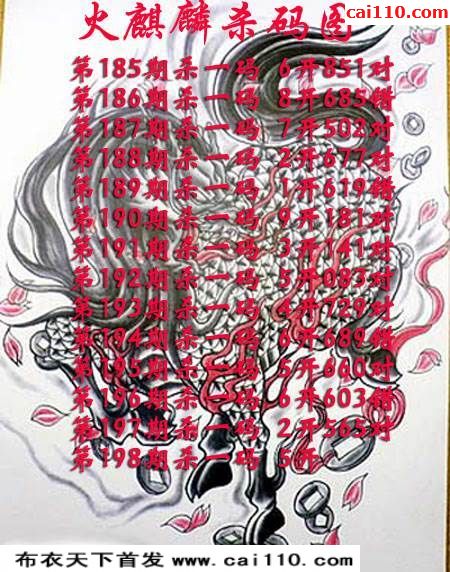 cai110.com
火麒麟杀码图
第185期杀一码 6开851对
第186期杀一码 8开685错
第187期杀一码 7开502对
第188期杀一码 2开677对
第189期杀一码 1开619错
第190期杀一码 9开181对
第191期杀一码 3开141对
第192期杀一码 5开083对
第193期杀一码 4开729对
第194期杀一码 6开689错
第195期杀一码 5开660对
第196期杀一码 6开603错
第197期杀一码 2开565对
第198期杀一码 5开
布衣天下首发 www.cai110.com